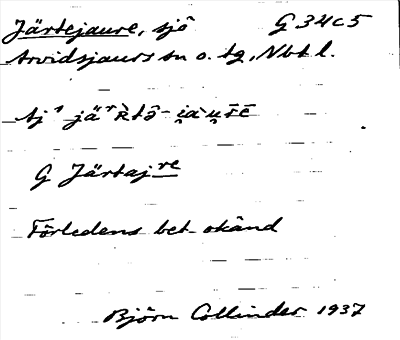 Järtejaure, sjö G 34c5
Arvidsjaurs sn o. tg, Nbt l.
G Järtajre
Förledens bet okänd
Björn Collinder 1937